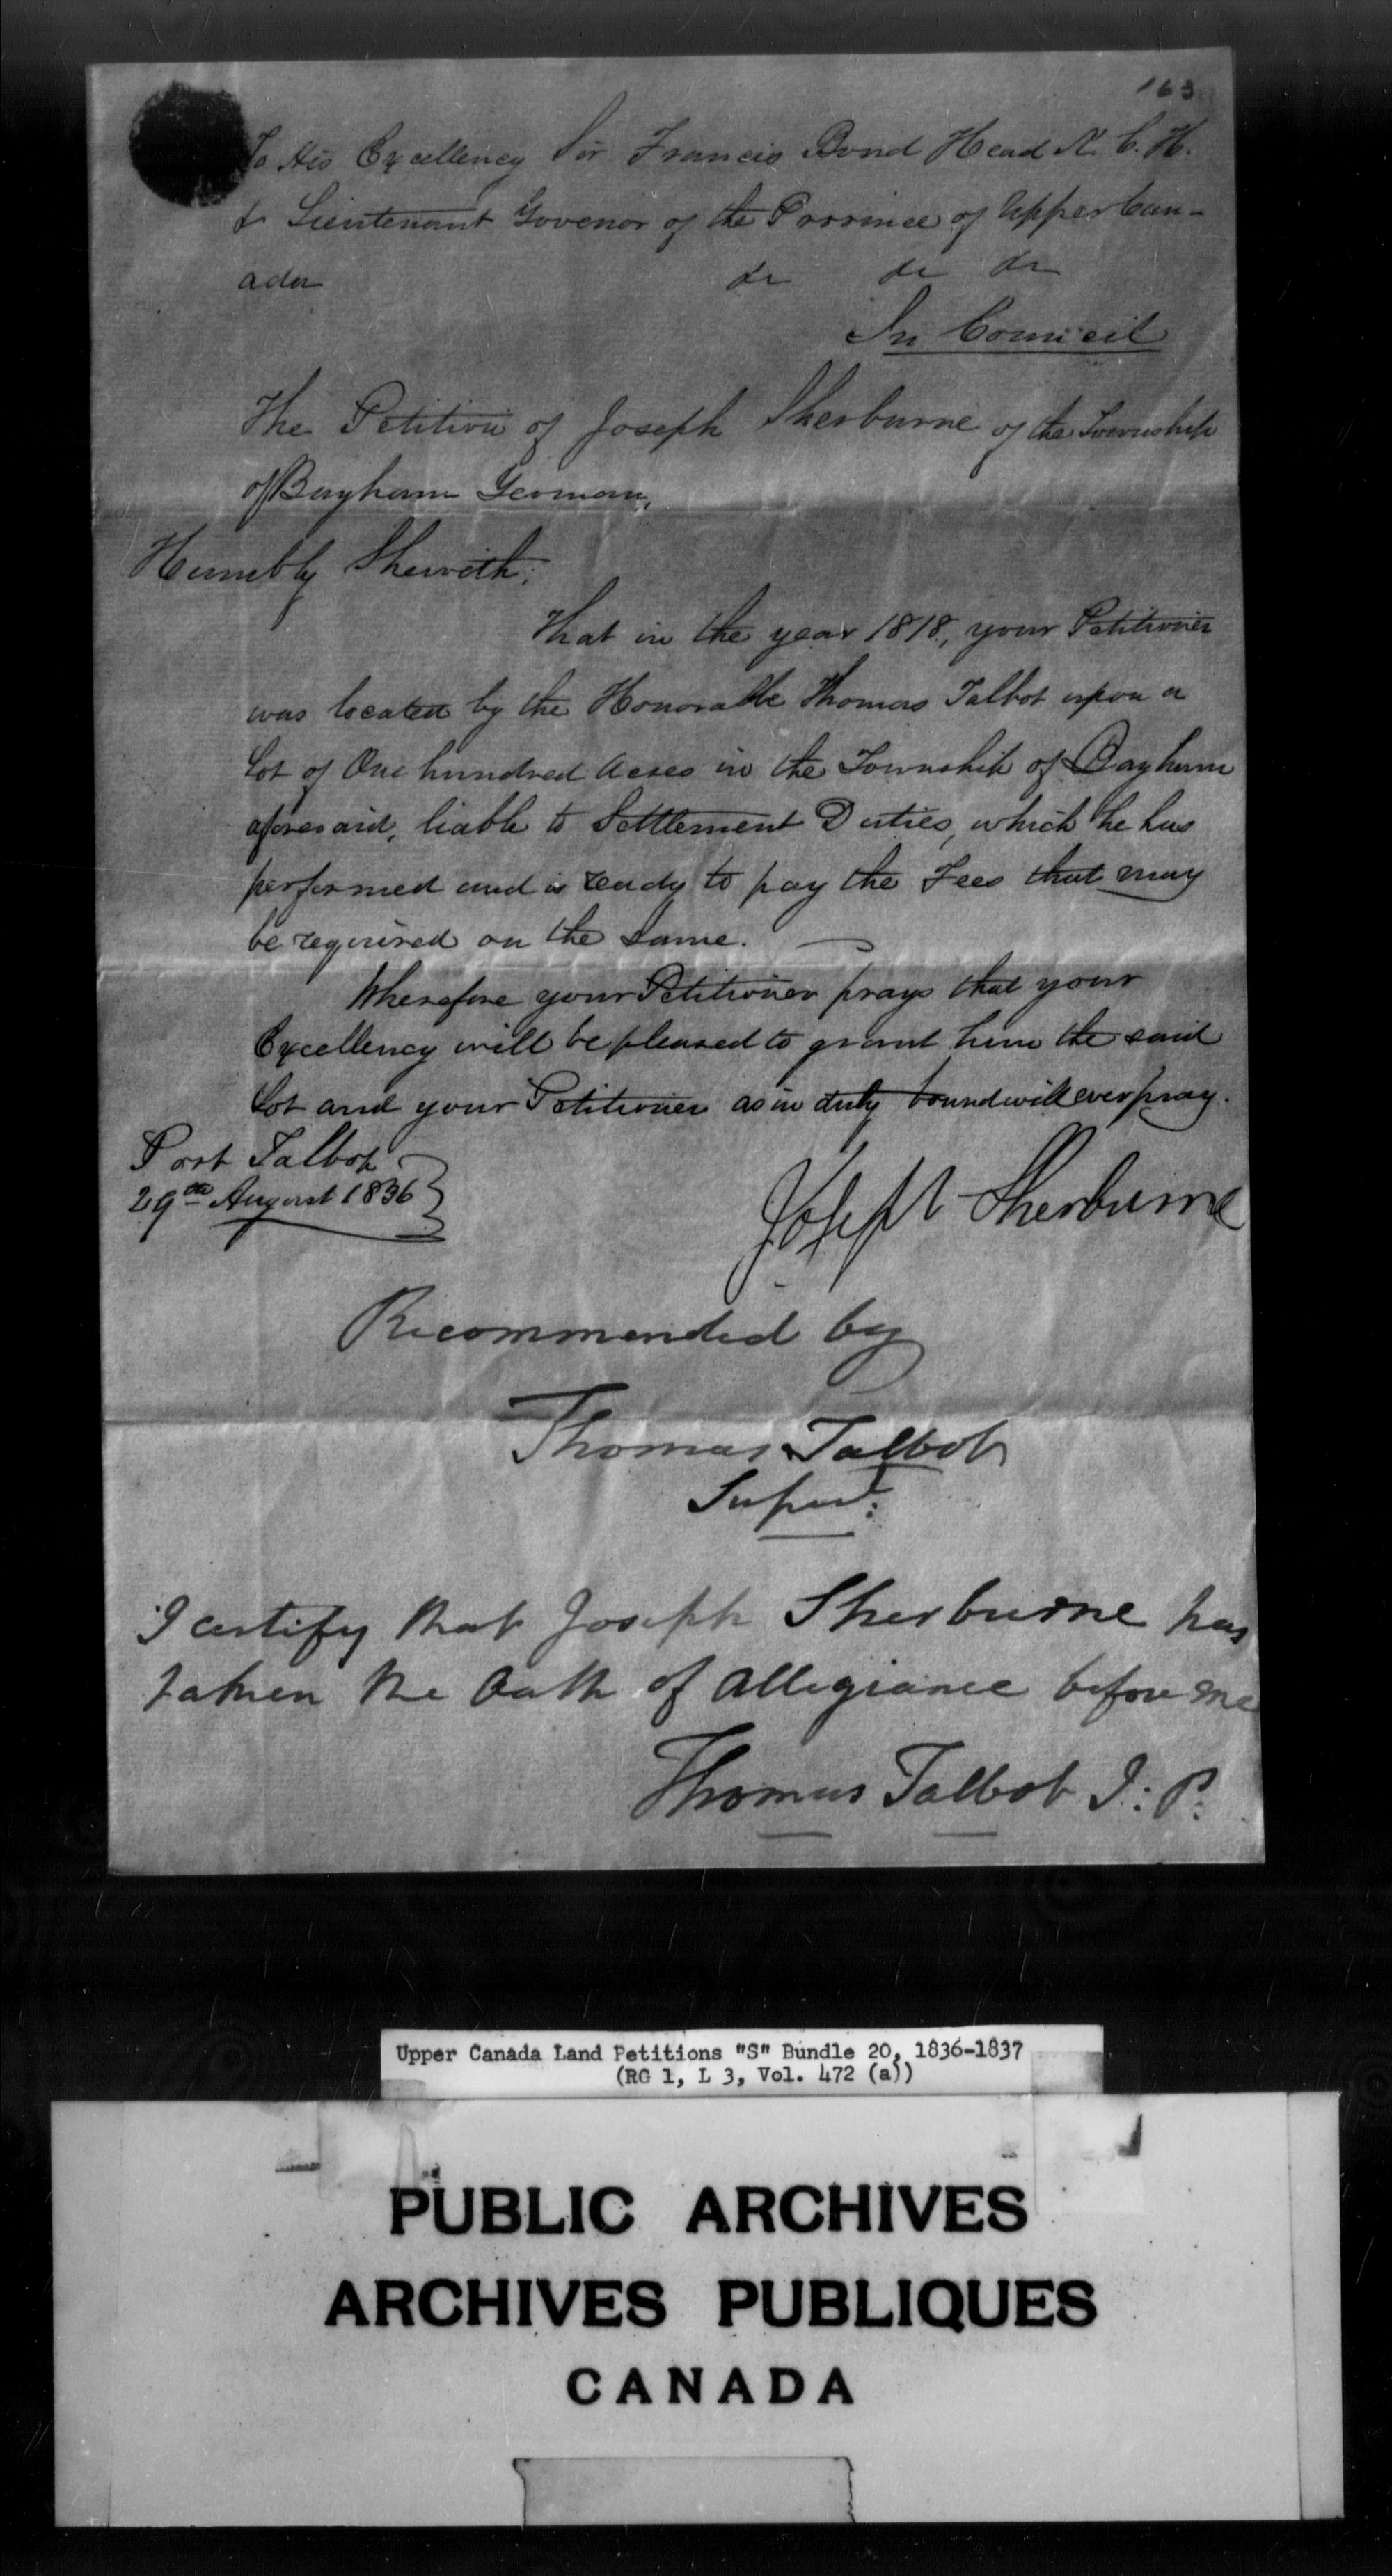 163
To His Excellency Sir Francis Bond Head K. C. H.
& Lieutenant Govenor of the Province of Upper Can-
ada &c &c &c
In Council
The Petition of Joseph Sherburne of the Township
of Bayham Yeoman,
Humbly Sheweth;
That in the year 1818, your Petitioner
was located by the Honorable Thomas Talbot upon a
Lot of One hundred Acres in the Township of Bayham
aforesaid, liable to Settlement Duties, which he has
performed and is ready to pay the Fees that may
be required on the same.
Wherefore your Petitioner prays that your
Excellency will be pleased to grant him the said
Lot and your Petitioner as in duty bound will ever pray.
Port Talbot
29th August 1836
Joseph Sherburne
Recommended by
Thomas Talbot
Supert:
I certify that Joseph Sherburne has
taken the Oath of Allegiance before me
Thomas Talbot J: P:
Upper Canada Land Petitions "S" Bundle 20, 1836-1837
(RG 1, L 3, Vol. 472 (a))
PUBLIC ARCHIVES
ARCHIVES PUBLIQUES
CANADA